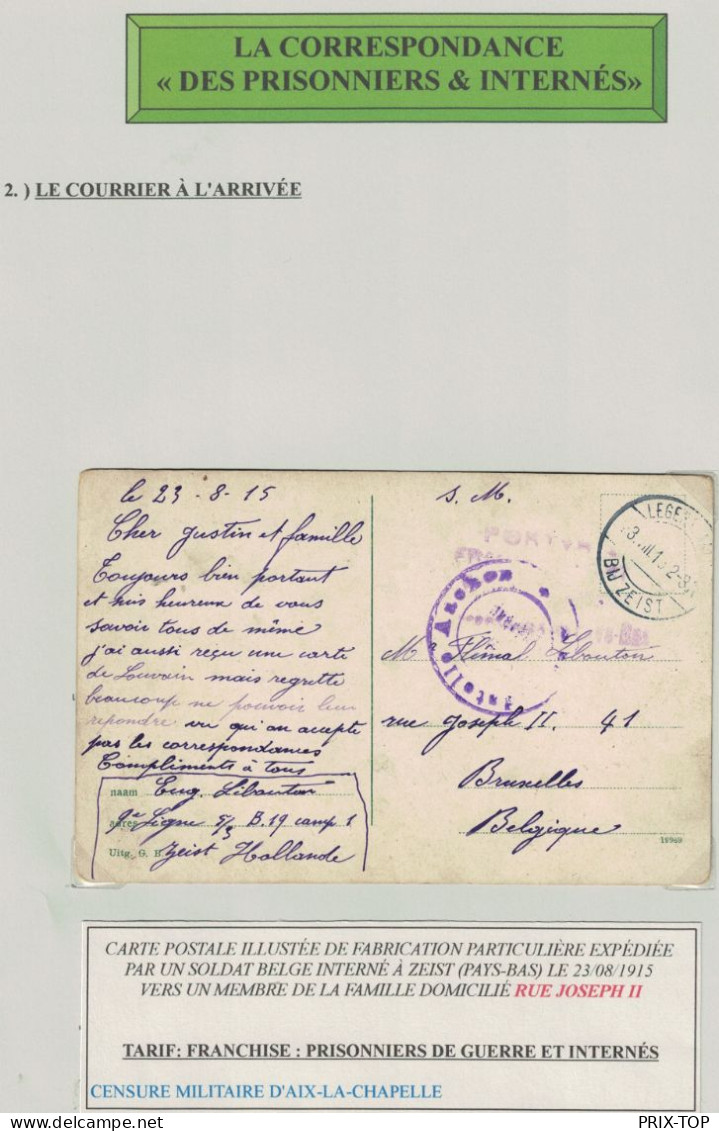 LA CORRESPONDANCE
« DES PRISONNIERS & INTERNÉS»
2. ) LE COURRIER À L'ARRIVÉE
le 23-8-15
Cher Justin et famille
Toujours bien portant
et suis heureux de vous
savoir tous de même
j'ai aussi reçu une carte
de Louvain mais regrette
beaucoup ne pouvoir leur
repondre vu qu'on accepte
pas les correspondances
Compliments à tous
naam Eug. Libouton
adres 9e Ligne 5/3 B.19 camp 1
Uitg. G. H. Zeist Hollande
S. M.
PORTVR
LEGER
BIJ ZEIST
Aachen
Mr Libouton
rue Joseph II. 41
Bruxelles
Belgique
18969
CARTE POSTALE ILLUSTÉE DE FABRICATION PARTICULIÈRE EXPÉDIÉE
PAR UN SOLDAT BELGE INTERNÉ À ZEIST (PAYS-BAS) LE 23/08/1915
VERS UN MEMBRE DE LA FAMILLE DOMICILIÉ RUE JOSEPH II
TARIF: FRANCHISE : PRISONNIERS DE GUERRE ET INTERNÉS
CENSURE MILITAIRE D'AIX-LA-CHAPELLE
PRIX-TOP